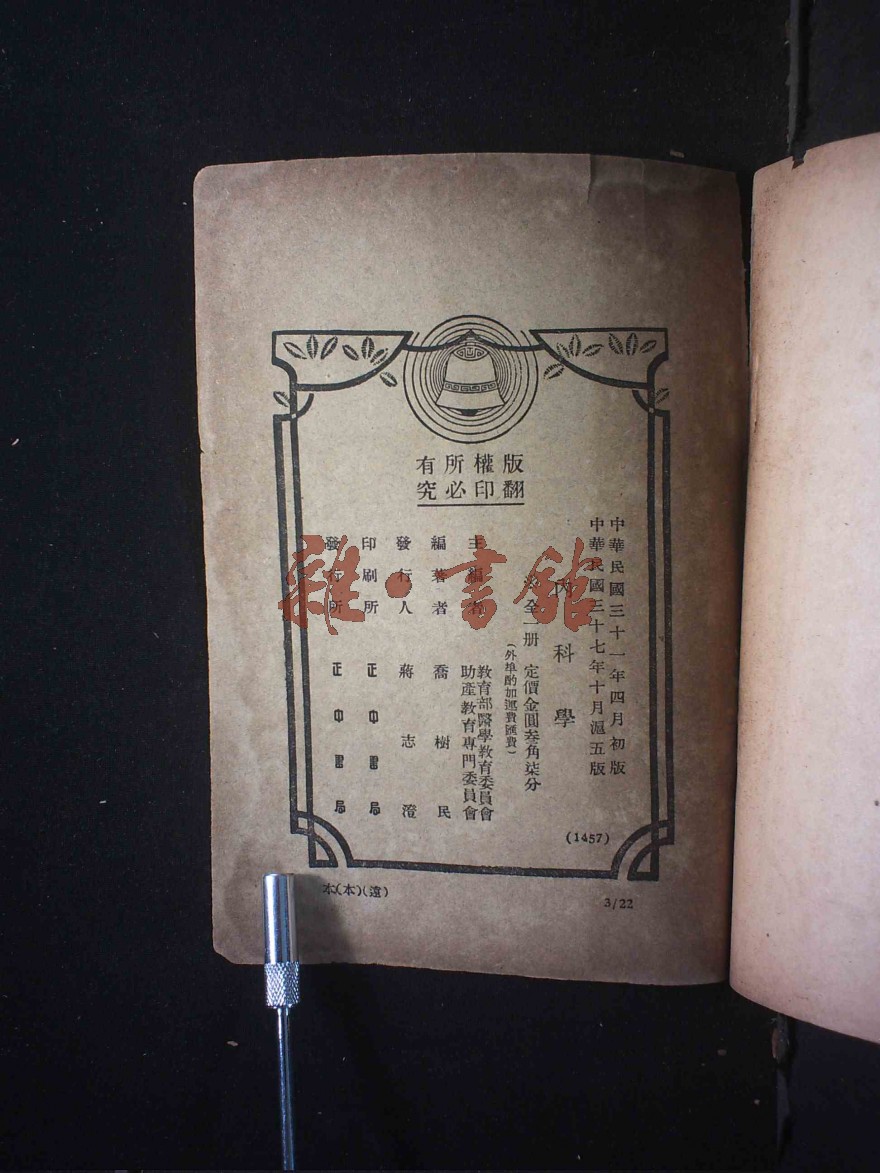 版權所有
翻印必究
中華民國三十一年四月初版
中華民國三十七年十月滬五版
內科學
全一册 定價金圓叁角柒分
(外埠酌加運費匯費)
主編者 教育部醫學教育委員會
助產教育專門委員會
編著者 喬樹民
發行人 蔣志澄
印刷所 正中書局
發行所 正中書局
(1457)
本(本)(遠)
3/22
雜·書館